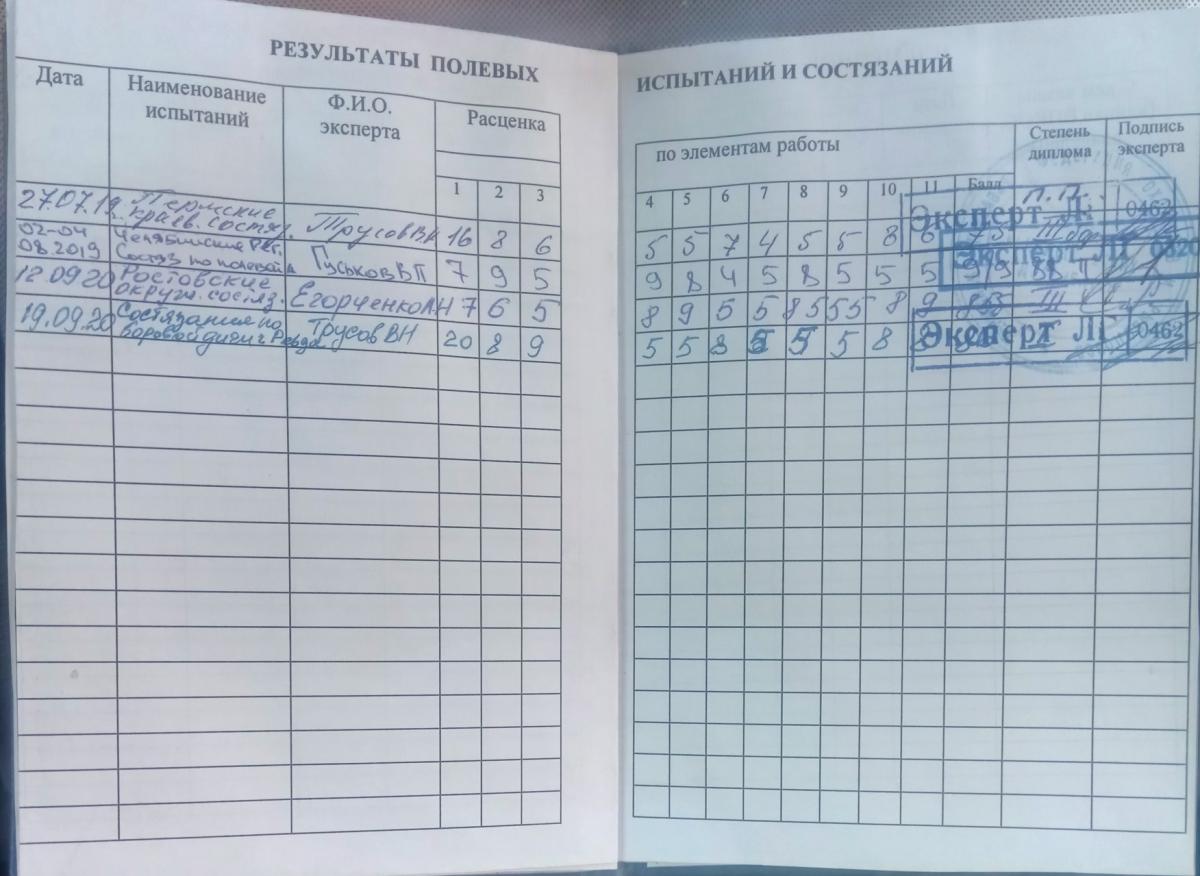 РЕЗУЛЬТАТЫ ПОЛЕВЫХ
ИСПЫТАНИЙ И СОСТЯЗАНИЙ
Дата
Наименование испытаний
Ф.И.О. эксперта
Расценка
по элементам работы
Степень диплома
Подпись эксперта
1 2 3
4 5 6 7 8 9 10 11 Балл
27.07.19 Пермские краев. состяз. Трусов В.Н 16 8 6
5 5 7 4 5 5 8 6 75
02-04 08.2019 Челябинские Состяз по полевой Гуськов В П 7 9 5
9 8 4 5 8 5 5 5
12.09.20 Ростовские окружн. состяз. Егорченко 7 6 5
8 9 5 5 8 5 5 5 8 9 III
19.09.20 Состязания по боровой дичи г Ревда Трусов ВН 20 8 9
5 5 8 5 5 5 8 8
Эксперт Л. 0462
Эксперт Л
Эксперт Л 0462